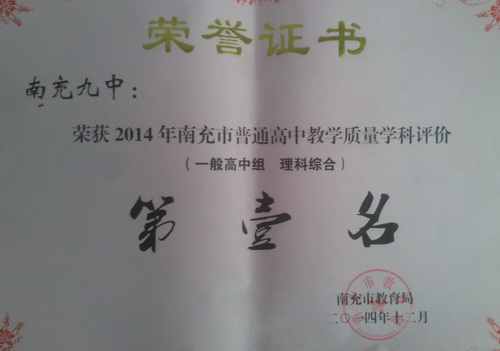 荣誉证书
南充九中：
荣获2014年南充市普通高中教学质量学科评价
（一般高中组 理科综合）
第壹名
南充市教育局
二〇一四年十二月